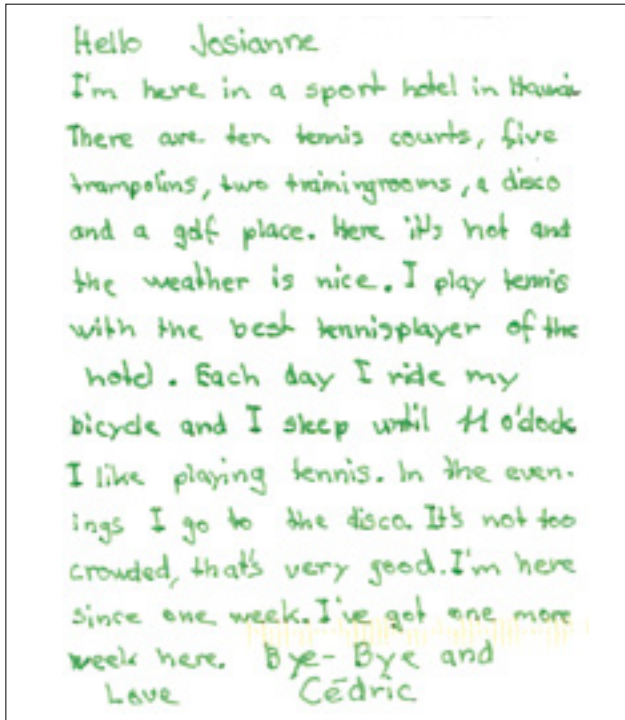 Hello Josianne
I'm here in a sport hotel in Hawai
There are ten tennis courts, five
trampolins, two trainingrooms, a disco
and a golf place. Here it's hot and
the weather is nice. I play tennis
with the best tennisplayer of the
hotel. Each day I ride my
bicycle and I sleep until 11 o'clock
I like playing tennis. In the even-
ings I go to the disco. It's not too
crowded, that's very good. I'm here
since one week. I've got one more
week here. Bye-Bye and
Love Cédric